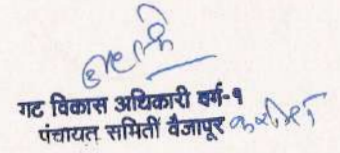 गट विकास अधिकारी वर्ग-१
पंचायत समिती वैजापूर